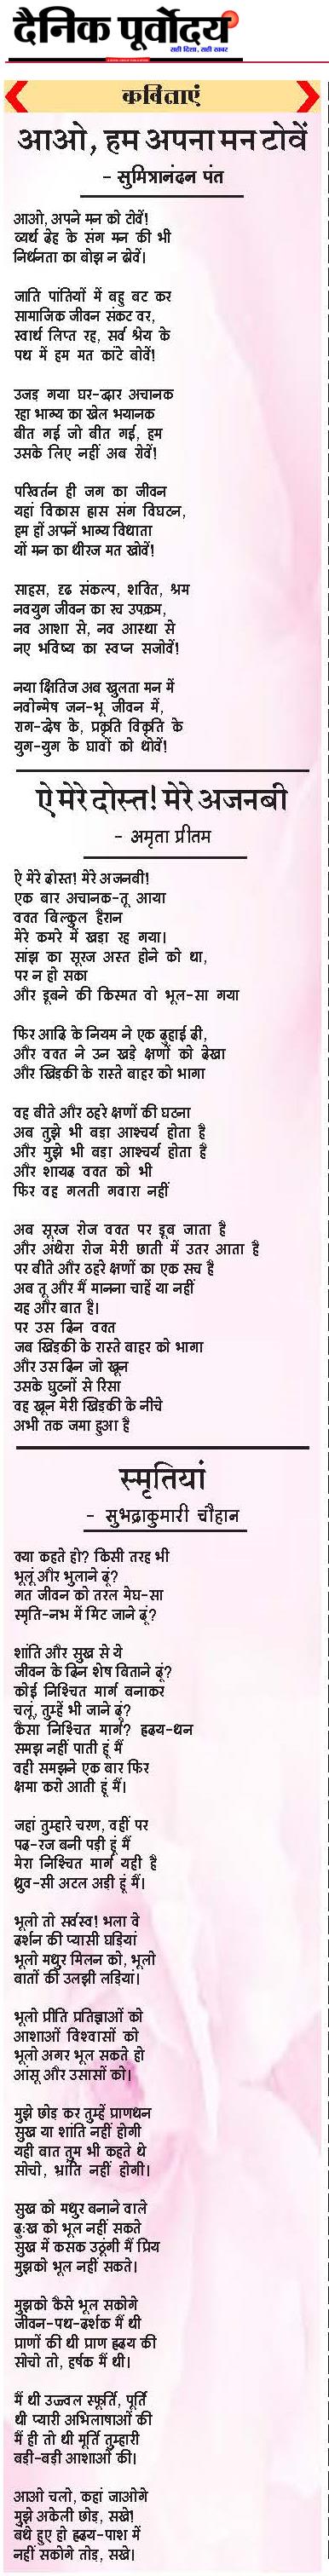 दैनिक पूर्वोदय
सही दिशा, सही खबर
कविताएं
आओ, हम अपना मन टोवें
- सुमित्रानंदन पंत
आओ, अपने मन को टोवें!
व्यर्थ देह के संग मन की भी
निर्धनता का बोझ न ढोवें।
जाति पांतियों में बहु बट कर
सामाजिक जीवन संकट वर,
स्वार्थ लिप्त रह, सर्व श्रेय के
पथ में हम मत कांटे बोवें!
उजड़ गया घर-द्वार अचानक
रहा भाग्य का खेल भयानक
बीत गई जो बीत गई, हम
उसके लिए नहीं अब रोवें!
परिवर्तन ही जग का जीवन
यहां विकास ह्रास संग विघटन,
हम हों अपनें भाग्य विधाता
यों मन का धीरज मत खोवें!
साहस, दृढ संकल्प, शक्ति, श्रम
नवयुग जीवन का रच उपक्रम,
नव आशा से, नव आस्था से
नए भविष्य का स्वप्न सजोवें!
नया क्षितिज अब खुलता मन में
नवोन्मेष जन-भू जीवन में,
राग-द्वेष के, प्रकृति विकृति के
युग-युग के घावों को धोवें!
ऐ मेरे दोस्त! मेरे अजनबी
- अमृता प्रीतम
ऐ मेरे दोस्त! मेरे अजनबी!
एक बार अचानक-तू आया
वक्त बिल्कुल हैरान
मेरे कमरे में खड़ा रह गया।
सांझ का सूरज अस्त होने को था,
पर न हो सका
और डूबने की किस्मत वो भूल-सा गया
फिर आदि के नियम ने एक दुहाई दी,
और वक्त ने उन खड़े क्षणों को देखा
और खिड़की के रास्ते बाहर को भागा
वह बीते और ठहरे क्षणों की घटना
अब तुझे भी बडा आश्चर्य होता है
और मुझे भी बडा आश्चर्य होता है
और शायद वक्त को भी
फिर वह गलती गवारा नहीं
अब सूरज रोज वक्त पर डूब जाता है
और अंधेरा रोज मेरी छाती में उतर आता है
पर बीते और ठहरे क्षणों का एक सच है
अब तू और मैं मानना चाहें या नहीं
यह और बात है।
पर उस दिन वक्त
जब खिड़की के रास्ते बाहर को भागा
और उस दिन जो खून
उसके घुटनों से रिसा
वह खून मेरी खिड़की के नीचे
अभी तक जमा हुआ है
स्मृतियां
- सुभद्राकुमारी चौहान
क्या कहते हो? किसी तरह भी
भूलूं और भुलाने दूं?
गत जीवन को तरल मेघ-सा
स्मृति-नभ में मिट जाने दूं?
शांति और सुख से ये
जीवन के दिन शेष बिताने दूं?
कोई निश्चित मार्ग बनाकर
चलूं, तुम्हें भी जाने दूं?
कैसा निश्चित मार्ग? ह्रदय-धन
समझ नहीं पाती हूं मैं
वही समझने एक बार फिर
क्षमा करो आती हूं मैं।
जहां तुम्हारे चरण, वहीं पर
पद-रज बनी पड़ी हूं मैं
मेरा निश्चित मार्ग यही है
ध्रुव-सी अटल अड़ी हूं मैं।
भूलो तो सर्वस्व! भला वे
दर्शन की प्यासी घड़ियां
भूलो मधुर मिलन को, भूलो
बातों की उलझी लड़ियां।
भूलो प्रीति प्रतिज्ञाओं को
आशाओं विश्वासों को
भूलो अगर भूल सकते हो
आंसू और उसासों को।
मुझे छोड़ कर तुम्हें प्राणधन
सुख या शांति नहीं होगी
यही बात तुम भी कहते थे
सोचो, भ्रांति नहीं होगी।
सुख को मधुर बनाने वाले
दुःख को भूल नहीं सकते
सुख में कसक उठूंगी मैं प्रिय
मुझको भूल नहीं सकते।
मुझको कैसे भूल सकोगे
जीवन-पथ-दर्शक मैं थी
प्राणों की थी प्राण ह्रदय की
सोचो तो, हर्षक मैं थी।
मैं थी उज्ज्वल स्फूर्ति, पूर्ति
थी प्यारी अभिलाषाओं की
मैं ही तो थी मूर्ति तुम्हारी
बड़ी-बड़ी आशाओं की।
आओ चलो, कहां जाओगे
मुझे अकेली छोड़, सखे!
बंधे हुए हो ह्रदय-पाश में
नहीं सकोगे तोड़, सखे।